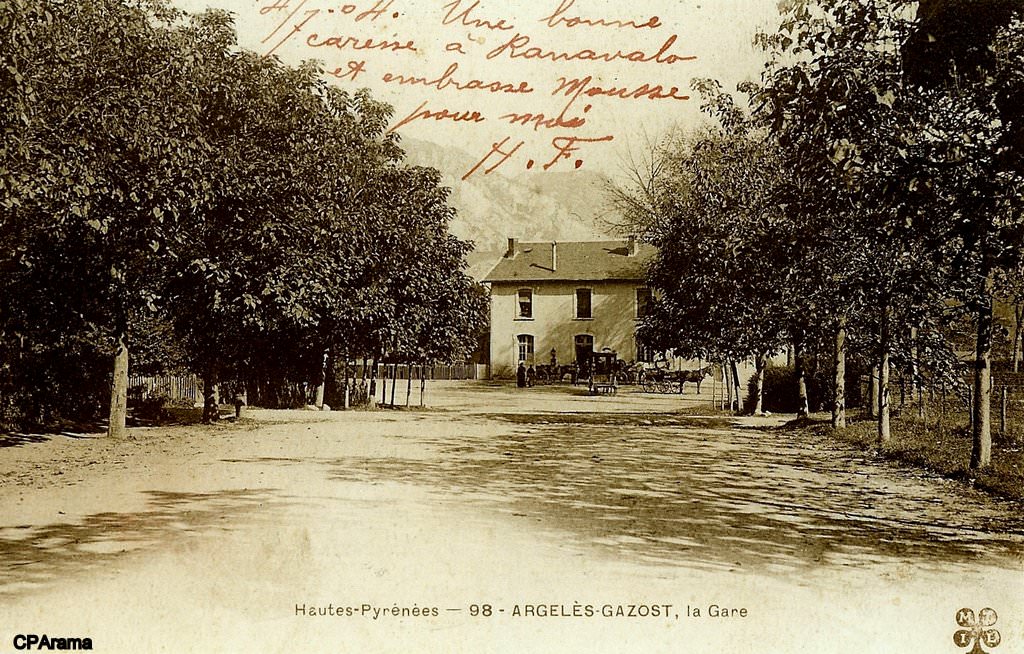 4/7.04. Une bonne
caresse à Ranavalo
et embrasse Mousse
pour moi
H.F.
Hautes-Pyrénées — 98 - ARGELÈS-GAZOST, la Gare
CPArama
MTIL